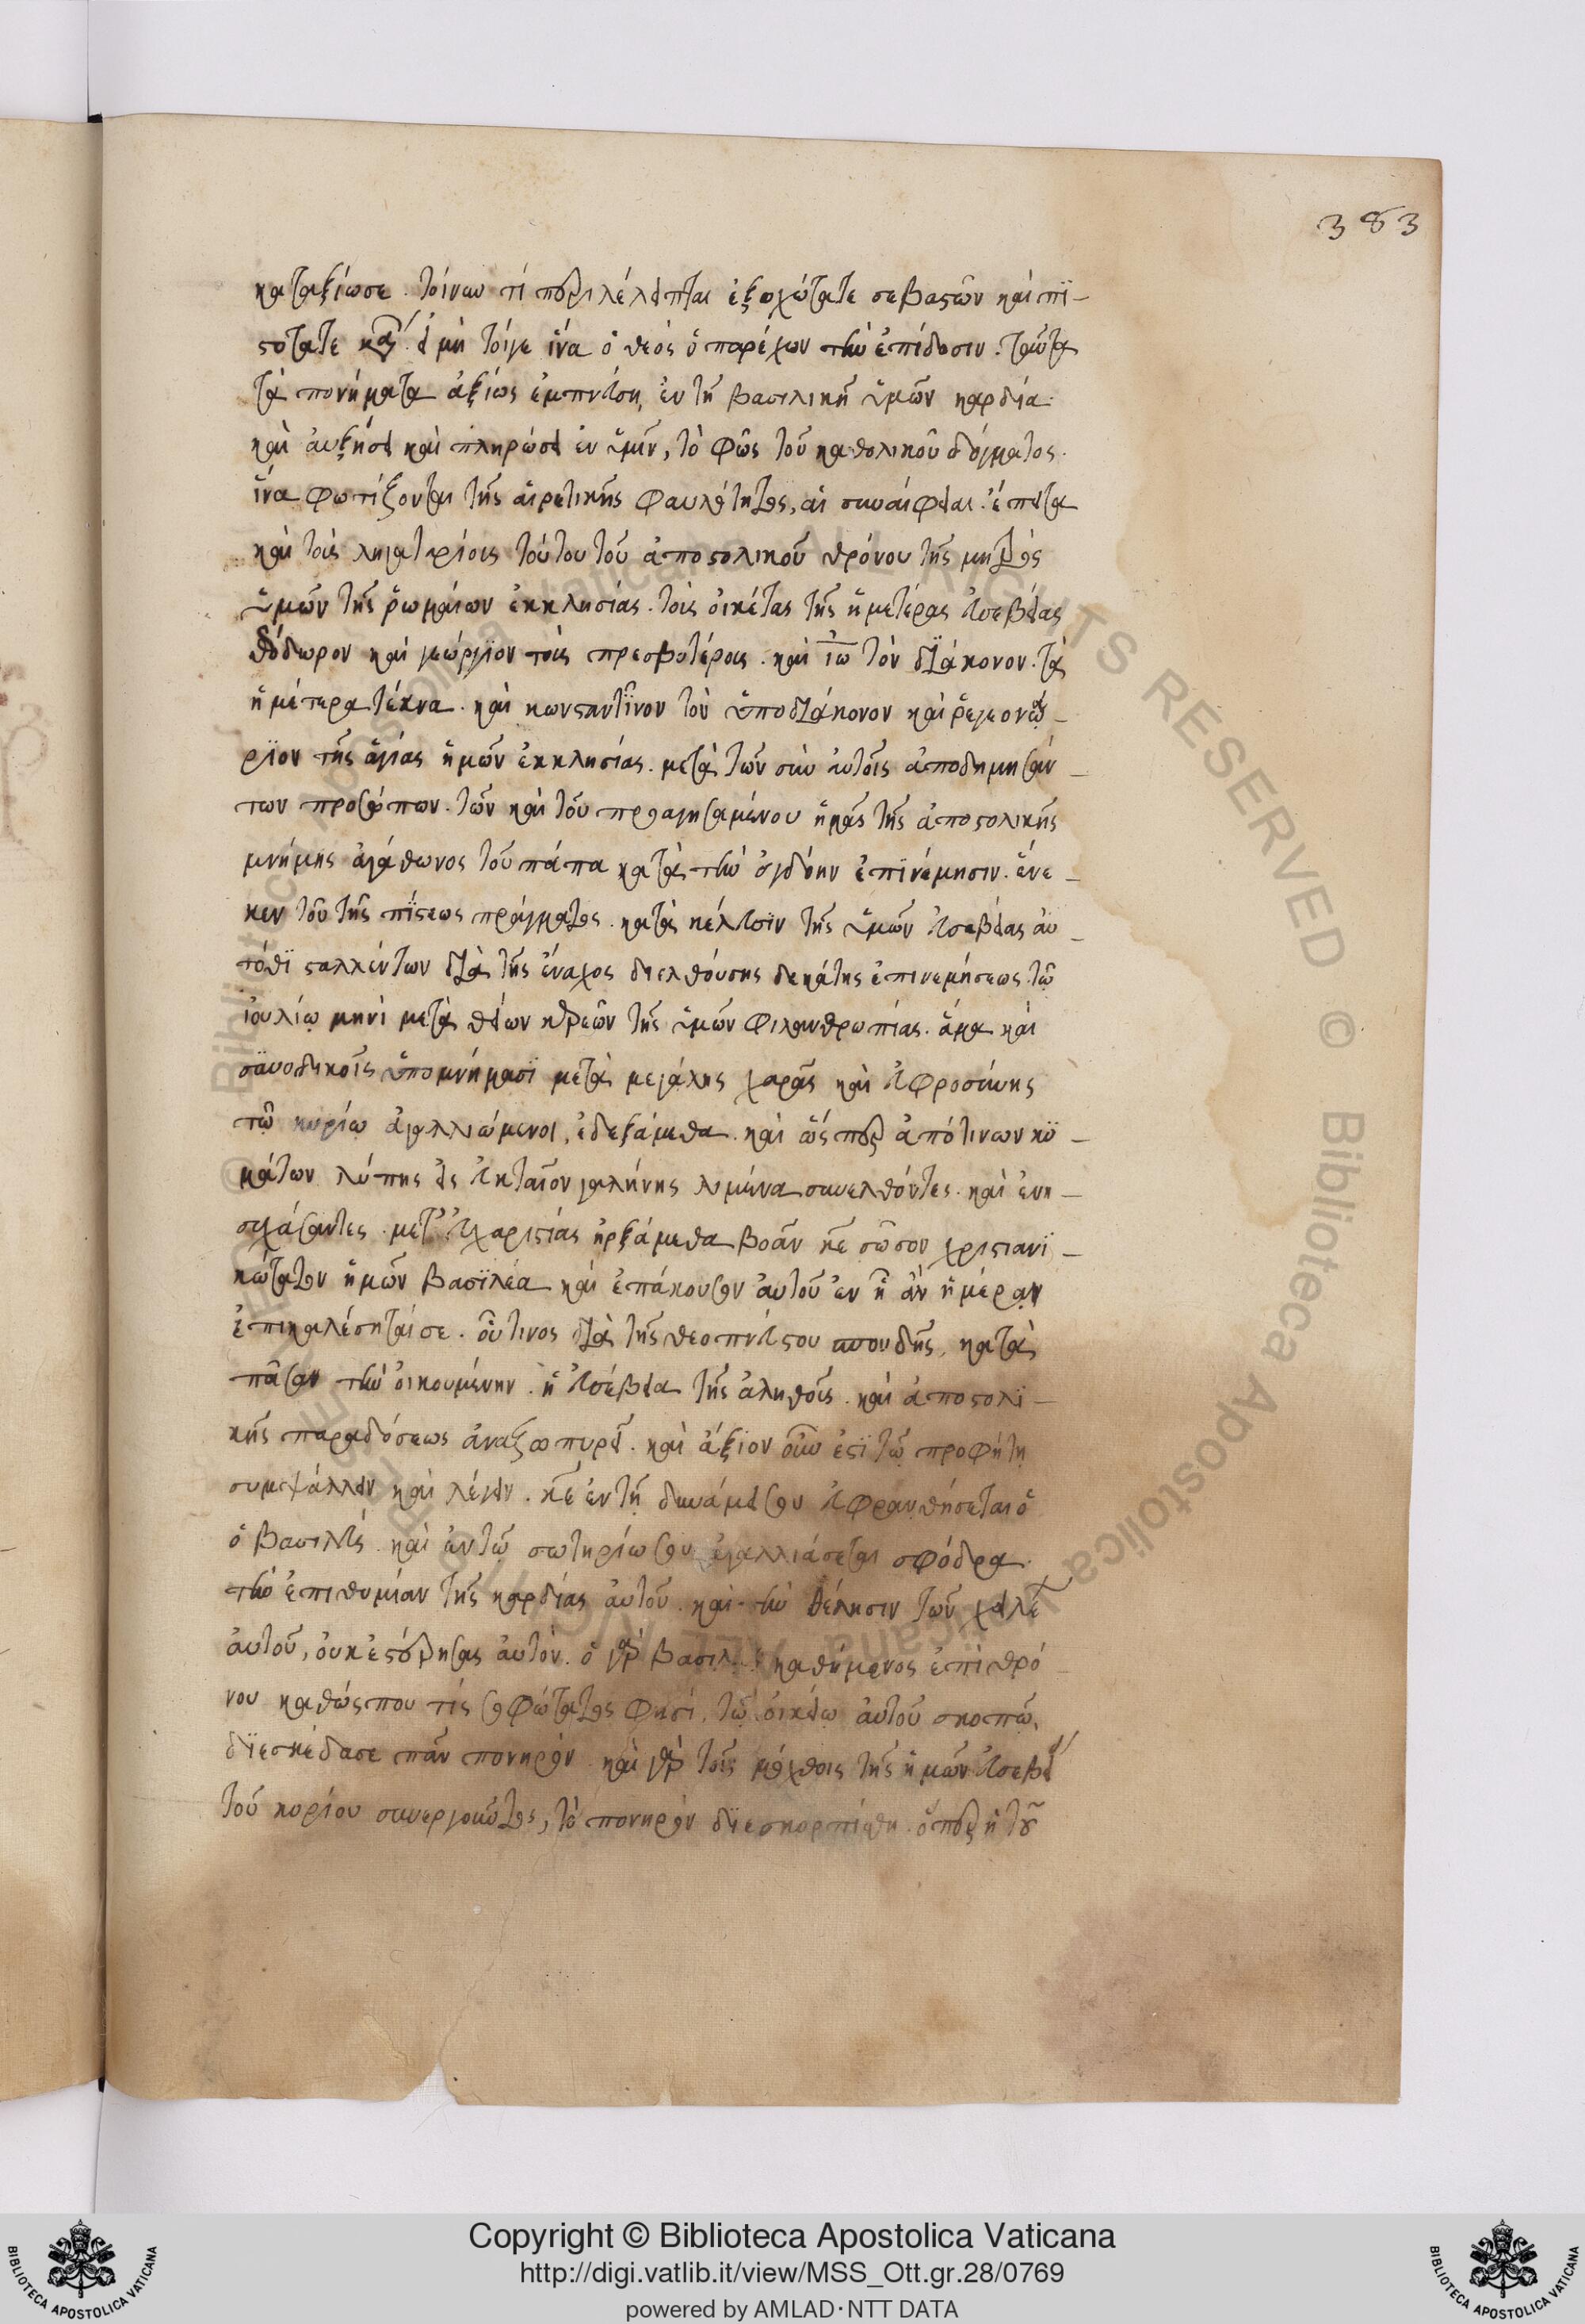 383
καταξίωσε. τοίνυν τί περιλέλειπται ἐξοχώτατε σεβαστῶν καὶ πϊ-
στότατε
εἰ μὴ τοίγε ἵνα ὁ θεὸς ὁ παρέχων τὴν ἐπίδοσιν. ταῦτα
τὰ πονήματα ἀξίως ἐμπνεύση, ἐν τῆ βασιλικῆ ὑμῶν καρδία.
καὶ αὐξήσει καὶ πληρώσει ἐν ὑμῖν, τὸ φῶς τοῦ καθολικοῦ δόγματος.
ἵνα φωτίζονται τῆς αἱρετικῆς φαυλότητος, αἱ συναίφειαι. ἔπειτα
καὶ τοὺς ληγαταρίους τούτου τοῦ ἀποστολικοῦ θρόνου τῆς μητρὸς
ὑμῶν τῆς ῥωμαίων ἐκκλησίας. τοὺς οἰκέτας τῆς ἡμετέρας εὐσεβείας
θεόδωρον καὶ γεώργϊον τοὺς πρεσβυτέρους. καὶ ἰω τὸν διάκονον. τὰ
ἡμέτερα τέκνα. καὶ κωνσταντῖνον τὸν ὑποδιάκονον καὶ ῥεγεονα-
ρϊον τῆς ἁγίας ἡμῶν ἐκκλησίας. μετὰ τῶν σὺν αὐτοῖς ἀποδημησάν-
των προσώπων. τῶν καὶ τοῦ προαγησαμένου ἡμᾶς τῆς ἀποστολικῆς
μνήμης ἀγάθωνος τοῦ πάπα κατὰ τὴν ὀγδόην ἐπϊνέμησιν. ἕνε-
κεν τοῦ τῆς πίστεως πράγματος. κατὰ κέλευσϊν τῆς ὑμῶν εὐσεβείας αὐ-
τόθϊ σταλλέντων διὰ τῆς ἔναγχος διελθούσης δεκάτης ἐπινεμήσεως. τῶ
ἰουλίω μηνὶ μετὰ θείων κϋρεῶν τῆς ὑμῶν φιλανθρωπίας. ἅμα καὶ
συνοδικοῖς ὑπομνήμασϊ μετὰ μεγάλης χαρᾶς καὶ εὐφροσύνης
τῶ κυρίω ἀγαλλιώμενοι, ἐδεξάμεθα. καὶ ὥσπερ ἀπότινων κϋ-
μάτων λύπης εἰς εὐκταῖον γαλήνης λιμένα συνελθόντες. καὶ ἐνη-
συχάσαντες. μετ' εὐχαριστίας ἠρξάμεθα βοᾶν κε σῶσον χριστιανϊ-
κώτατον ἡμῶν βασϊλέα καὶ ἐπάκουσον αὐτοῦ ἐν ἧ ἂν ἡμέραν
ἐπικαλέσηταί σε. οὗτινος διὰ τῆς θεοπνεύστου σπουδῆς, κατὰ
πᾶσαν τὴν οἰκουμένην. ἡ εὐσέβεια τῆς ἀληθοῦς. καὶ ἀποστολϊ-
κῆς παραδόσεως ἀναζωπυρεῖ. καὶ ἄξϊον οὖν ἐστϊ τῶ προφήτη
συμψάλλειν καὶ λέγειν. κε ἐν τῆ δυνάμει σου εὐφρανθήσεται ὁ
ὁ βασιλεὺς. καὶ ἐν τῶ σωτηρίω σου ἀγαλλιάσεται σφόδρα.
τὴν ἐπιθυμίαν τῆς καρδίας αὐτοῦ. καὶ τὴν θέλησιν τῶν χειλέ
αὐτοῦ, οὐκ ἐστέρησας αὐτόν. ὁ γὰρ βασιλεὺς καθήμενος ἐπὶ θρό-
νου καθώς που τίς σοφώτατος φησί, τῶ οἰκείω αὐτοῦ σκοπῶ,
διεσκέδασε πᾶν πονηρόν. καὶ γὰρ τοῖς μόχθοις τῆς ἡμῶν εὐσεβεί
τοῦ κυρίου συνεργοῦντος, τὸ πονηρὸν διεσκορπίσθη. ὅπερ ἡ τοῦ
Copyright © Biblioteca Apostolica Vaticana
http://digi.vatlib.it/view/MSS_Ott.gr.28/0769
powered by AMLAD·NTT DATA
BIBLIOTECA APOSTOLICA VATICANA
BIBLIOTECA APOSTOLICA VATICANA